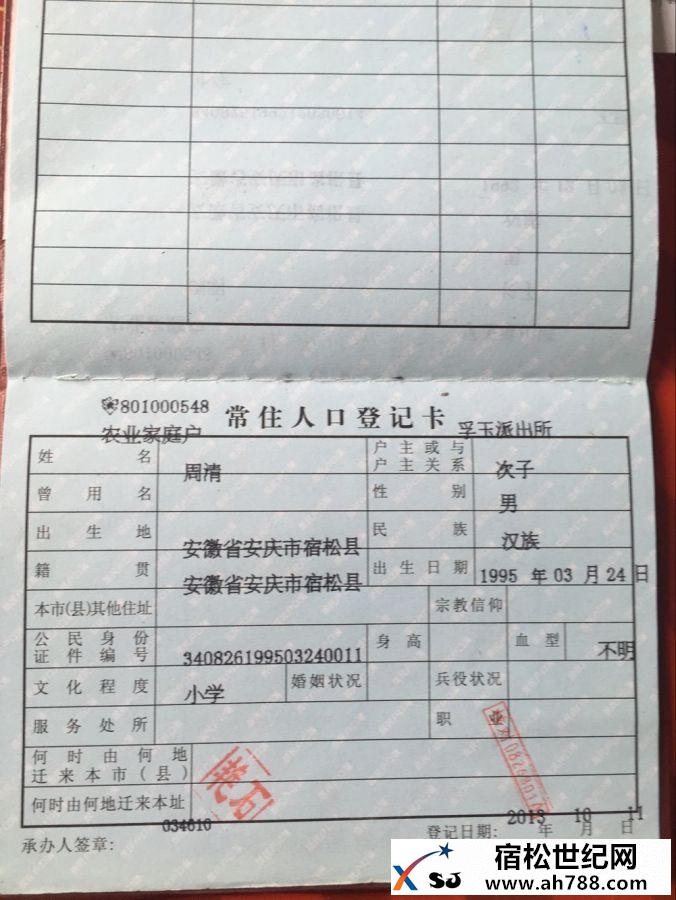 801000548 常住人口登记卡
农业家庭户 孚玉派出所
姓名 周清 户主或与户主关系 次子
曾用名 性别 男
出生地 安徽省安庆市宿松县 民族 汉族
籍贯 安徽省安庆市宿松县 出生日期 1995 年 03 月 24 日
本市(县)其他住址 宗教信仰
公民身份证件编号 340826199503240011 身高 血型 不明
文化程度 小学 婚姻状况 兵役状况
服务处所 职业
何时由何地迁来本市(县)
何时由何地迁来本址
034610
承办人签章: 登记日期: 2013 年 10 月 11 日
宿松世纪网
XSJ www.ah788.com